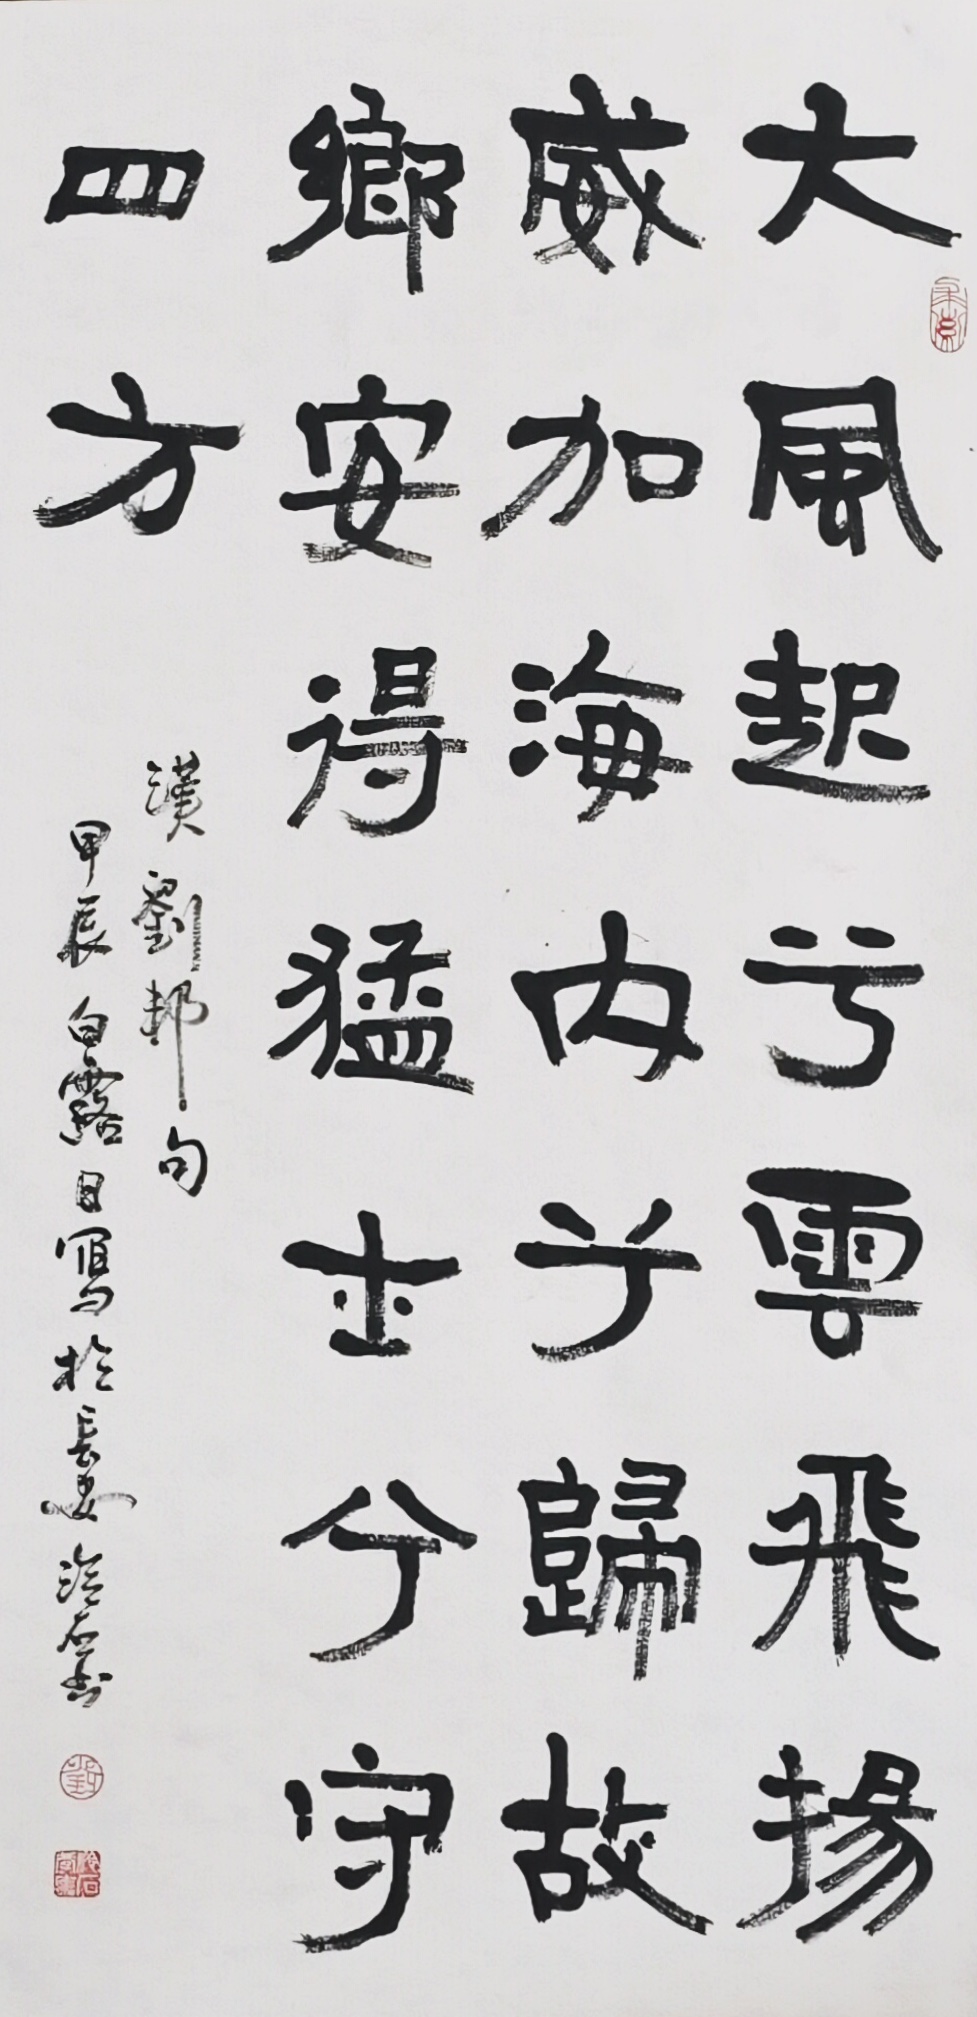 大風起兮雲飛揚
威加海内兮歸故
鄉安得猛士兮守
四方
漢劉邦句
甲辰白露日寫於長安冷石書